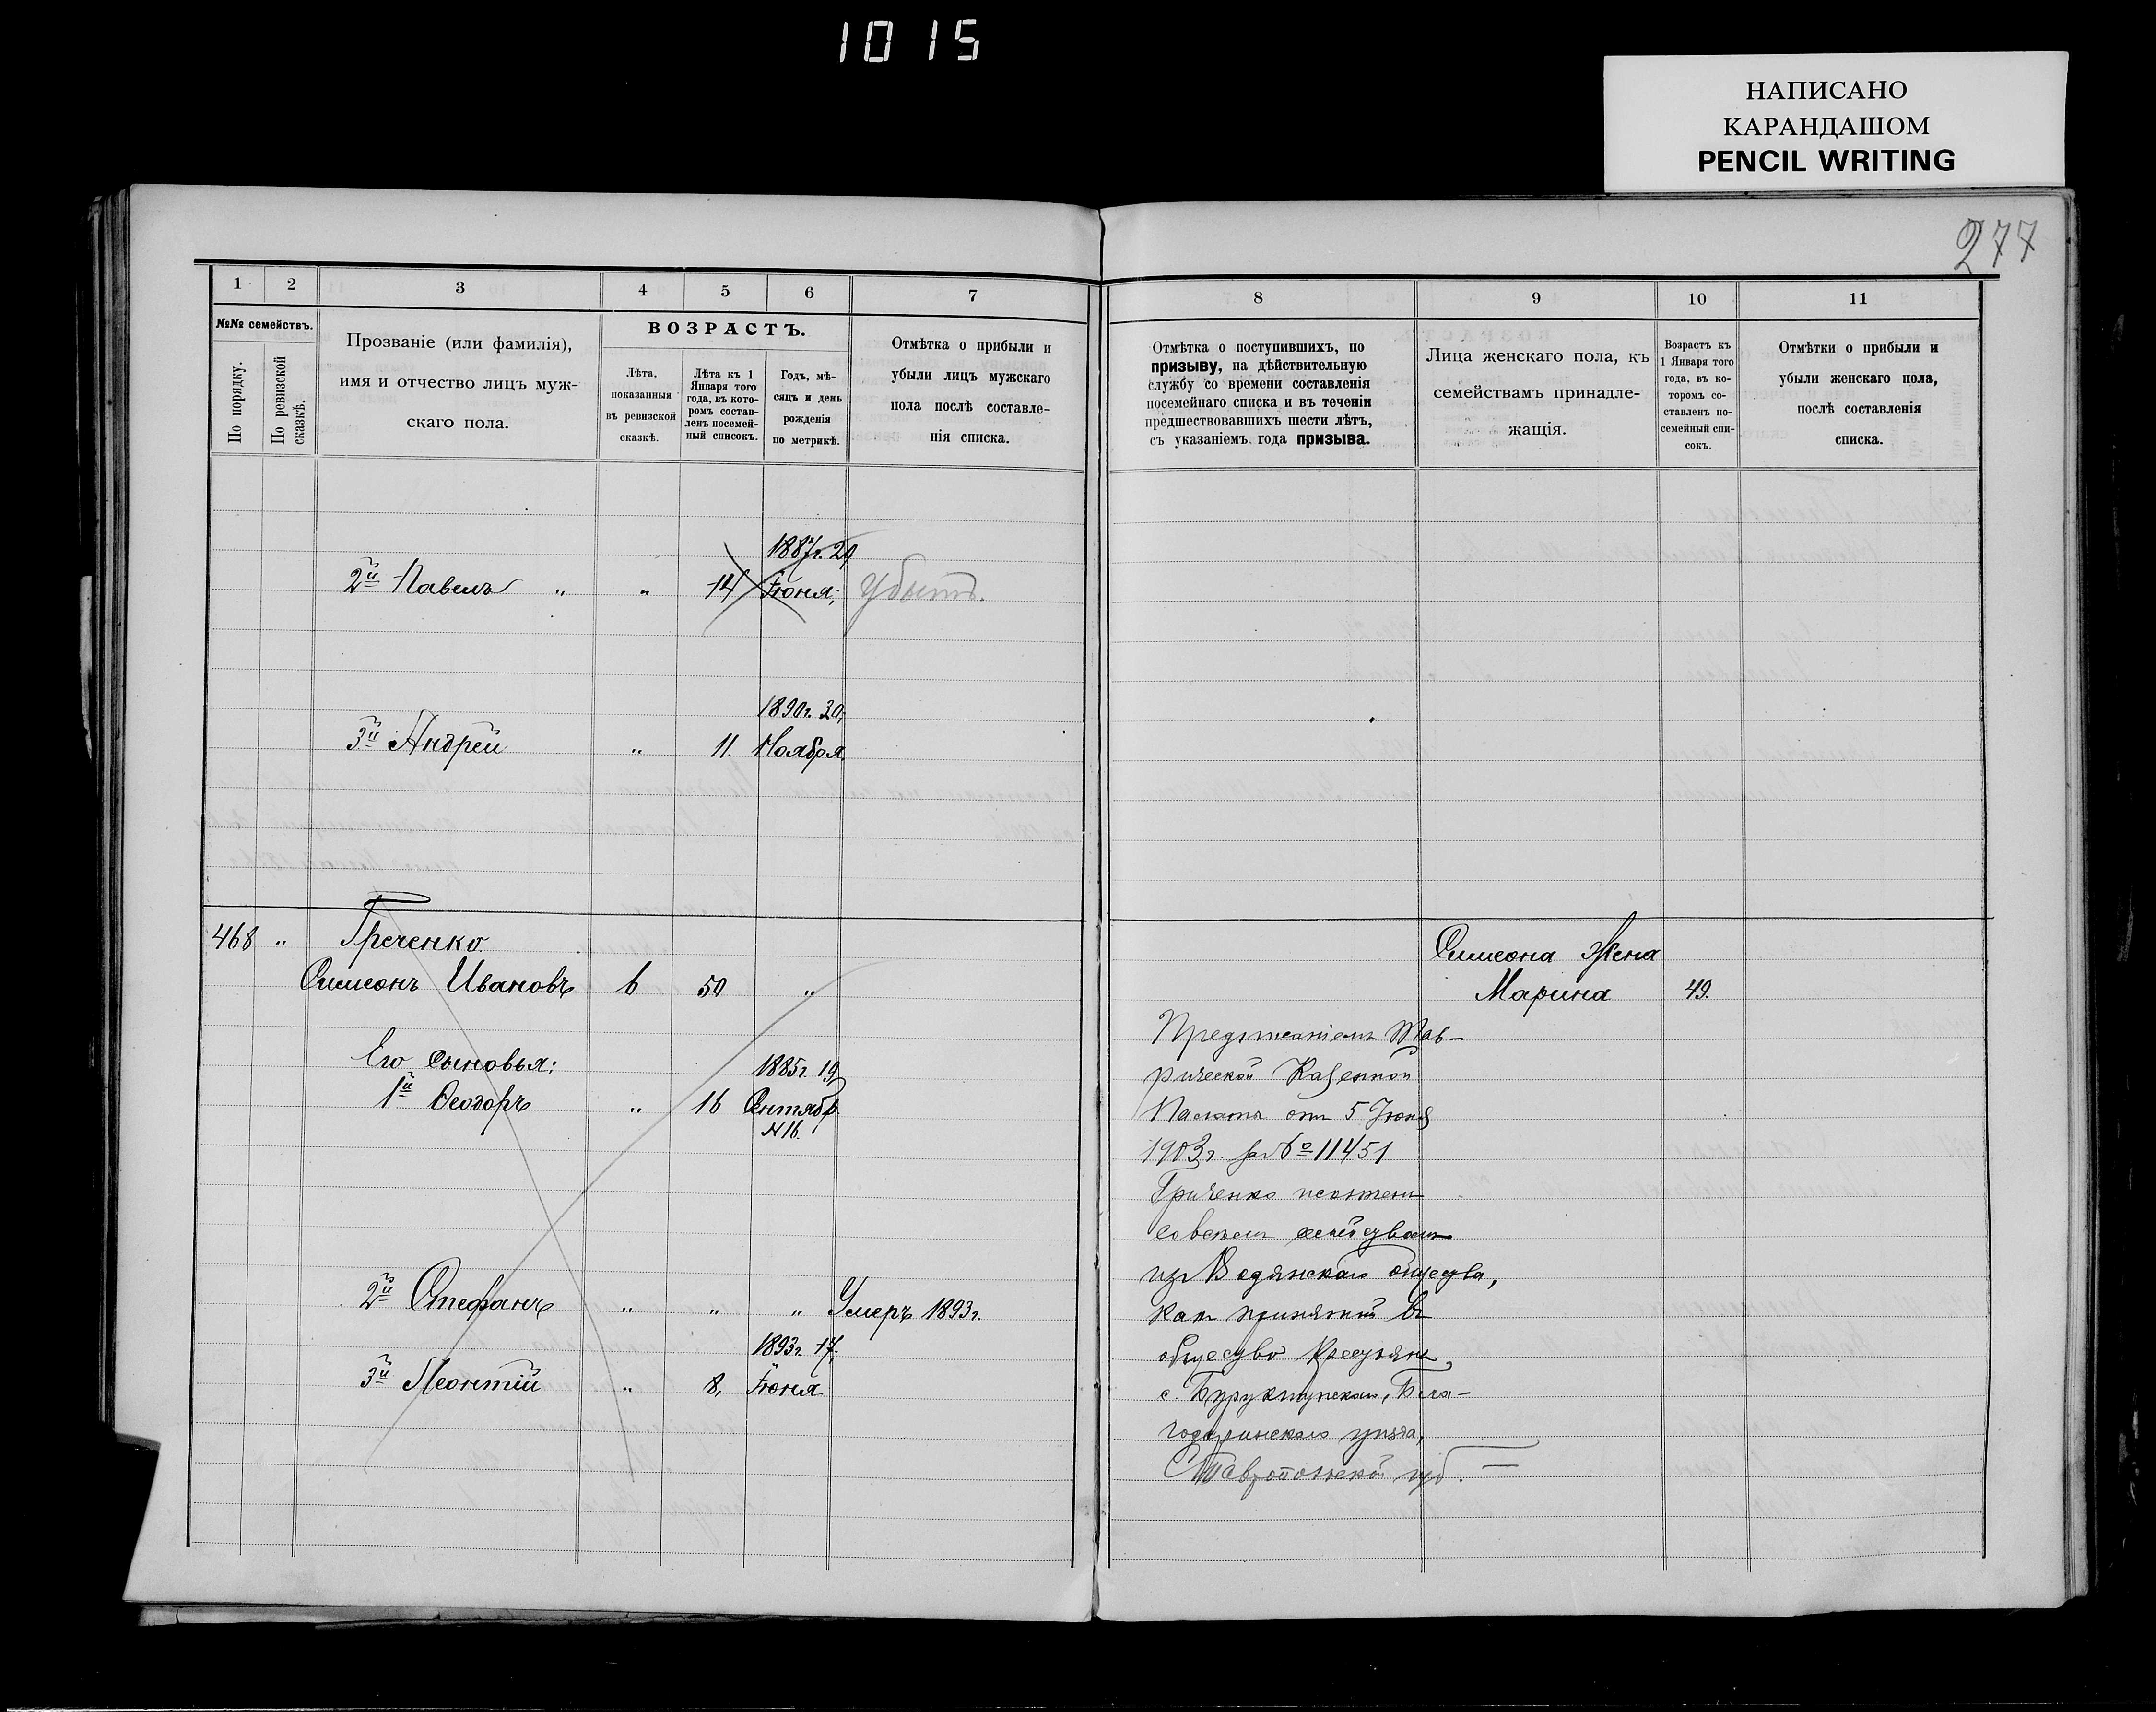 1015
НАПИСАНО
КАРАНДАШОМ
PENCIL WRITING
277
1 2 3 4 5 6 7
№№ семействъ.
По порядку.
По ревизской сказкѣ.
Прозваніе (или фамилія),
имя и отчество лицъ муж-
скаго пола.
ВОЗРАСТЪ.
Лѣта,
показанныя
въ ревизской
сказкѣ.
Лѣта къ 1
Января того
года, въ кото-
ромъ состав-
ленъ посемей-
ный списокъ.
Годъ, мѣ-
сяцъ и день
рожденія
по метрикѣ.
Отмѣтка о прибыли и
убыли лицъ мужскаго
пола послѣ составле-
нія списка.
1887г. 29
2й Павелъ „ „ 14 Іюня;
1890г. 30;
3й Андрей „ 11. Ноября.
468 „ Греченко
Симеонъ Ивановъ 6 50 „
Его сыновья:
1885г. 19
1й Ѳеодоръ „ 16 Сентябр.
N 16.
2й Стефанъ „ „ „ Умеръ 1893г.
1893г. 17,
3й Леонтій „ 8, Іюня
8 9 10 11
Отмѣтка о поступившихъ, по
призыву, на дѣйствительную
службу со времени составленія
посемейнаго списка и въ теченіи
предшествовавшихъ шести лѣтъ,
съ указаніемъ года призыва.
Лица женскаго пола, къ
семействамъ принадле-
жащія.
Возрастъ къ
1 Января того
года, въ ко-
торомъ со-
ставленъ по-
семейный спи-
сокъ.
Отмѣтки о прибыли и
убыли женскаго пола,
послѣ составленія
списка.
Симеона жена
Марина 49.
Предписаніемъ Тав-
рической Казенной
Палаты отъ 5 Іюня
1903г. за № 11451
Гриченко
семействомъ
изъ Водянскаго общества,
какъ принятый въ
общество крестьянъ
с. Бурукшунскаго, Бла-
годаринскаго уѣзда,
Ставропольской губ.